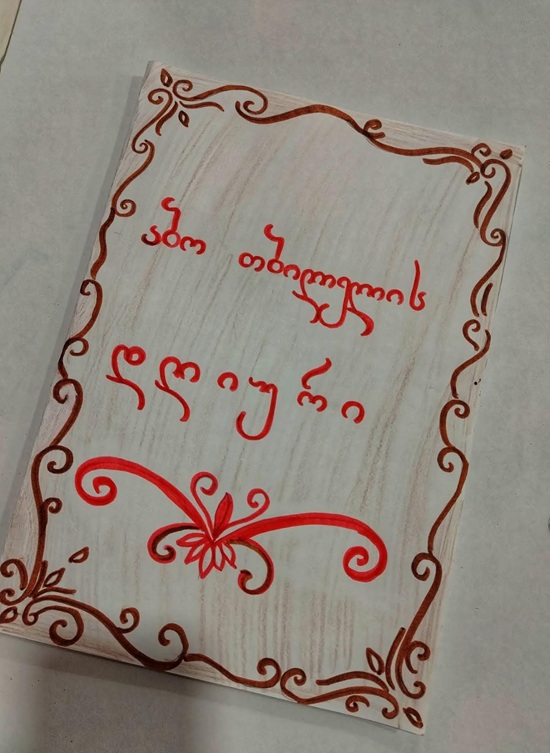 აბო თბილელის
დღიური